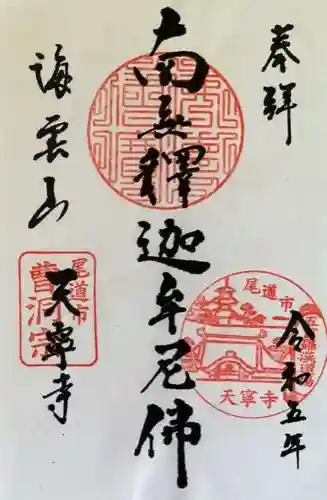 奉拝
令和五年
南無釋迦牟尼佛
海雲山
天寧寺
尾道市
曹洞宗
尾道市
天寧寺
五百羅漢